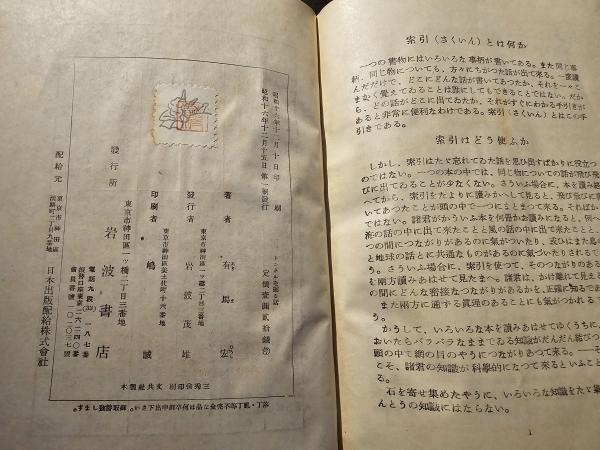 昭和十六年十二月十日印刷
昭和十六年十二月十五日第一刷發行
トンネルを掘る話
定價壹圓貳拾錢
著者 有馬宏
東京市神田區一ツ橋二丁目三番地
發行者 岩波茂雄
東京市神田區美土代町十六番地
印刷者 嶋誠
東京市神田區一ツ橋二丁目三番地
發行所 岩波書店
配給元
東京市神田區
淡路町二丁目九番地
日本出版配給株式會社
三秀舍印刷 文共社製本
索引(さくいん)とは何か
一つの書物にはいろいろな事柄が書いてある。また同じ事
柄、同じ物についても、方々にちがつた話が出て來る。一度讀
んだだけで、どこにどんな話が書いてあつたか、それを
まなく覺えてゐることは誰にしてもできることではない。だか
ら、どの話がどこに出てゐたか、それがすぐにわかる手引きが
あると非常に便利なわけである。索引(さくいん)とはこの手
引きである。
索引はどう使ふか
しかし、索引はたゞ忘れてゐた話を思ひ出すばかりに役立つ
ではない。一つの本の中では、同じ物についての話が飛び飛
びに出てゐることが少なくない。さういふ場合に、本を讀み終
へてから、索引をたよりに讀みかへして見ると、飛び飛びに
いてあつたことが頭の中で一つにまとまつて來る。そればか
ではない。諸君がかういふ本を何冊かお讀みになると、何
の話の中に出て來たことと風の話の中に出て來たこと
つの間につながりがあるのに氣がついたり、或ひはまた
と地球の話とに共通なものがあるのに氣づいたりされる
う。さういふ場合に、索引を使つて、そのつながりのある
を兩方讀みあはせて見たまへ。諸君は、かけ離れて見える
の間にどんなに密接なつながりがあるかを、正確に知る
また兩方に通ずる眞理のあることにも氣がつかれる
う。
かうして、いろいろな本を讀みあはせてゆくうちに、
おいたらバラバラなままでゐる知識がだんだん結びつ
頭の中で網の目のやうにつながりあつて來る。
こそ、諸君の知識が科學的になつて來るといふこと
石を寄せ集めたやうに、いろいろな知識をたゞ集
んとうの知識にはならない。
1